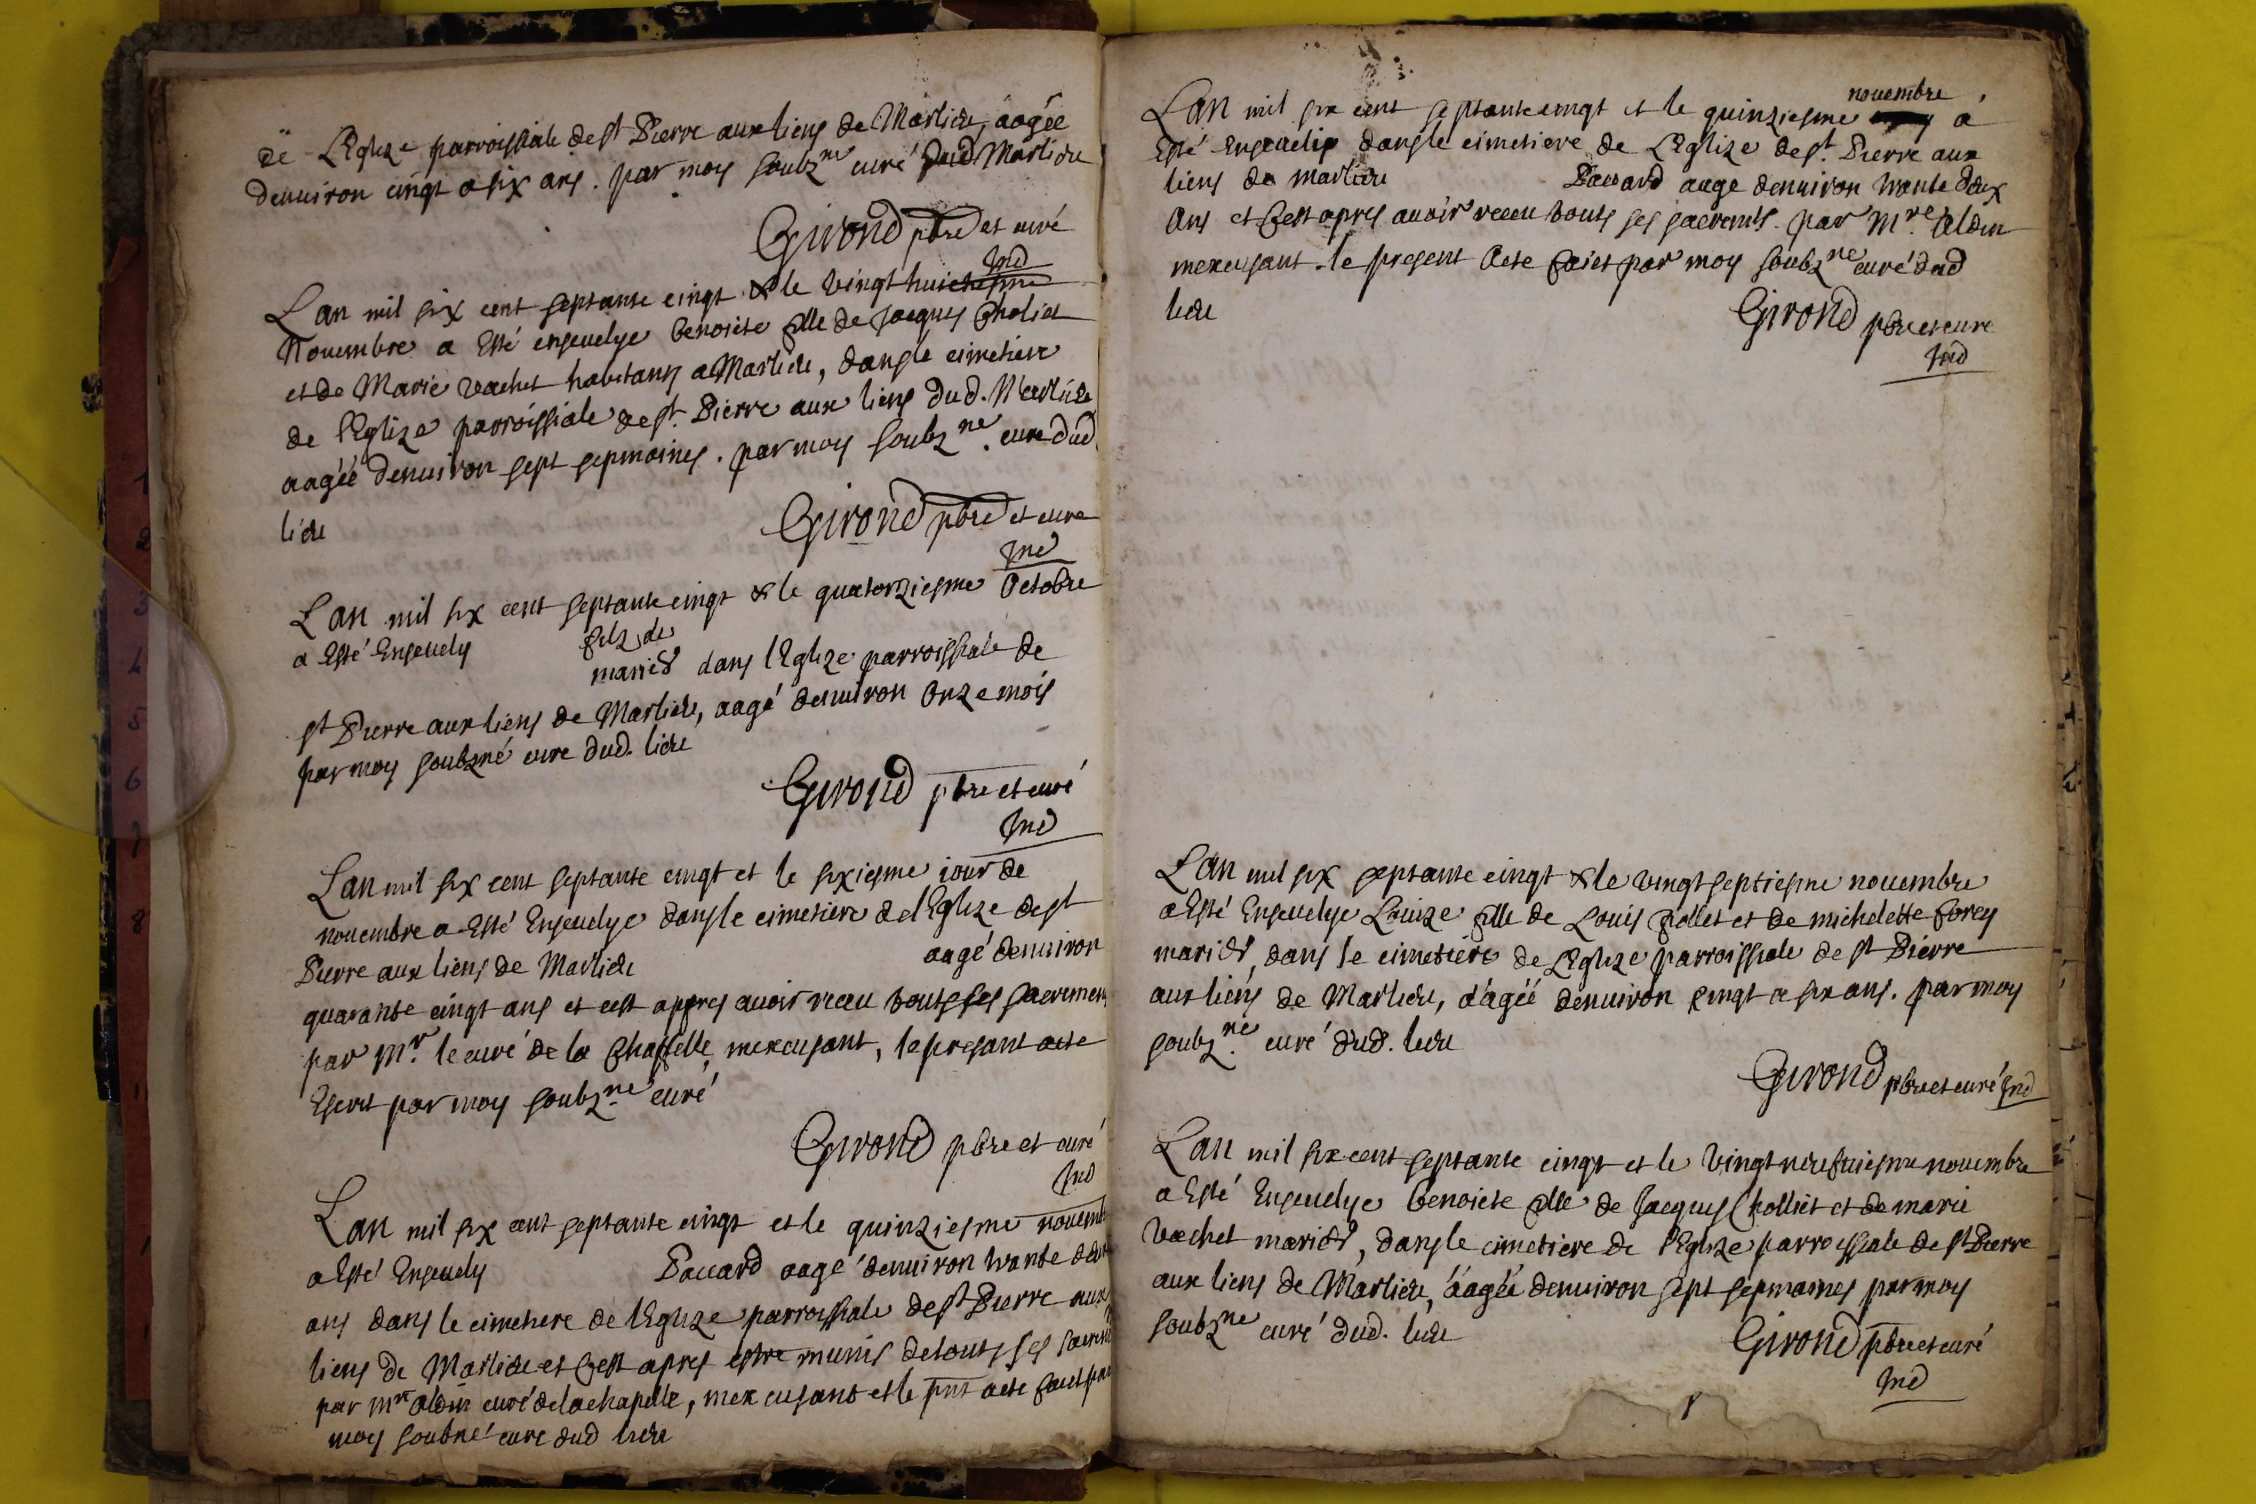 de LEglize parroissiale de st Pierre aux liens de Marlieu, aagée
denuiron cinqt a six ans. par moy soubzne curé dud Marlieu
Girond pbre et curé
Ind
Lan mil six cent septante cinqt & le vingt huictiesme
Nouembre a Esté enseuelye benoiste fille de Jacques Choliet
et de Marie vachet habitans a Marlieu, dans le cimetiere
de l'Eglize parroissiale de st. Pierre aux liens dud. Marlieu
aagéé denuiron sept sepmaines. par moy soubzne. cure dud
lieu
Girond pbre et cure
Ind
Lan mil six cent septante cinqt & le quatorziesme Octobre
a Esté Enseuely filz de
mariés dans l'Eglize parroissiale de
st Pierre aux liens de Marlieu, aagé denuiron Onze mois
par moy soubzné cure dud. lieu
Girond pbre et curé
Ind
Lan mil six cent septante cinqt et le sixiesme iour de
nouembre a Esté Enseuelye dans le cimetiere de l'Eglize de st
Pierre aux liens de Marlieu aagé denuiron
quarante cinqt ans et cest appres auoir receu touts ses sacremens
par Mr. le curé de la Chappelle, mexcusant, le presant acte
Escrit par moy soubzne curé
Girond pbre et curé
Ind
Lan mil six cent septante cinqt et le quinziesme nouemb
a Esté Enseuely Paccard aagé denuiron trante deux
ans dans le cimetiere de l'Eglize parroissiale de st Pierre aux
liens de Marlieu et cest apres estre munis de touts ses sacrem
par Mre Aldin curé de la chapelle, mexcusant et le pnt acte faict par
moy soubné cure dud lieu
Lan mil six cent septante cinqt et le quinziesme novembre à
Esté Enseuelis dans le cimetiere de LEglize de st. Pierre aux
liens de marlieu Paccard aage denuiron trante deux
Ans et cest apres auoir receu touts ses sacremts. par Mre. Aldin
mexcusant. le present Acte faict par moy soubzne curé dud
lieu
Girond pbre et cure
Ind
Lan mil six septante cinqt & le vingt septiesme nouembre
a Esté Enseuelye Louize fille de Louis follet et de michelette forey
mariés, dans le cimetiere de LEglize parroissiale de st Pierre
aux liens de Marlieu, dágéé denuiron cinqt a six ans. par moy
soubzne. curé dud. lieu
Girond pbre et curé Ind
Lan mil six cent septante cinqt et le vingt neufuiesme nouembre
a Esté Enseuelye benoiste fille de Jacques Cholliet et de marie
vachet mariés, dans le cimetiere de l'Eglize parroissiale de st Pierre
aux liens de Marlieu, áagéé denuiron sept sepmaines par moy
soubzne curé dud. lieu
Girond pbre et curé
Ind